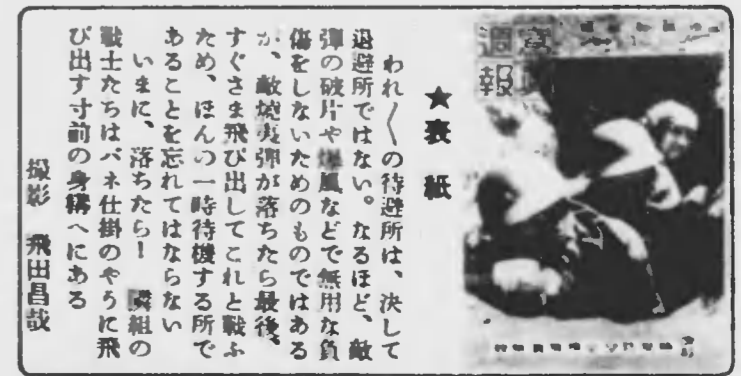 ★表紙
われ〳〵の待避所は、決して
退避所ではない。なるほど、敵
弾の破片や爆風などで無用な負
傷をしないためのものではある
が、敵焼夷弾が落ちたら最後、
すぐさま飛び出してこれと戦ふ
ため、ほんの一時待機する所で
あることを忘れてはならない
いまに、落ちたら！　隣組の
戦士たちはバネ仕掛のやうに飛
び出す寸前の身構へにある
撮影　飛田昌哉
週報